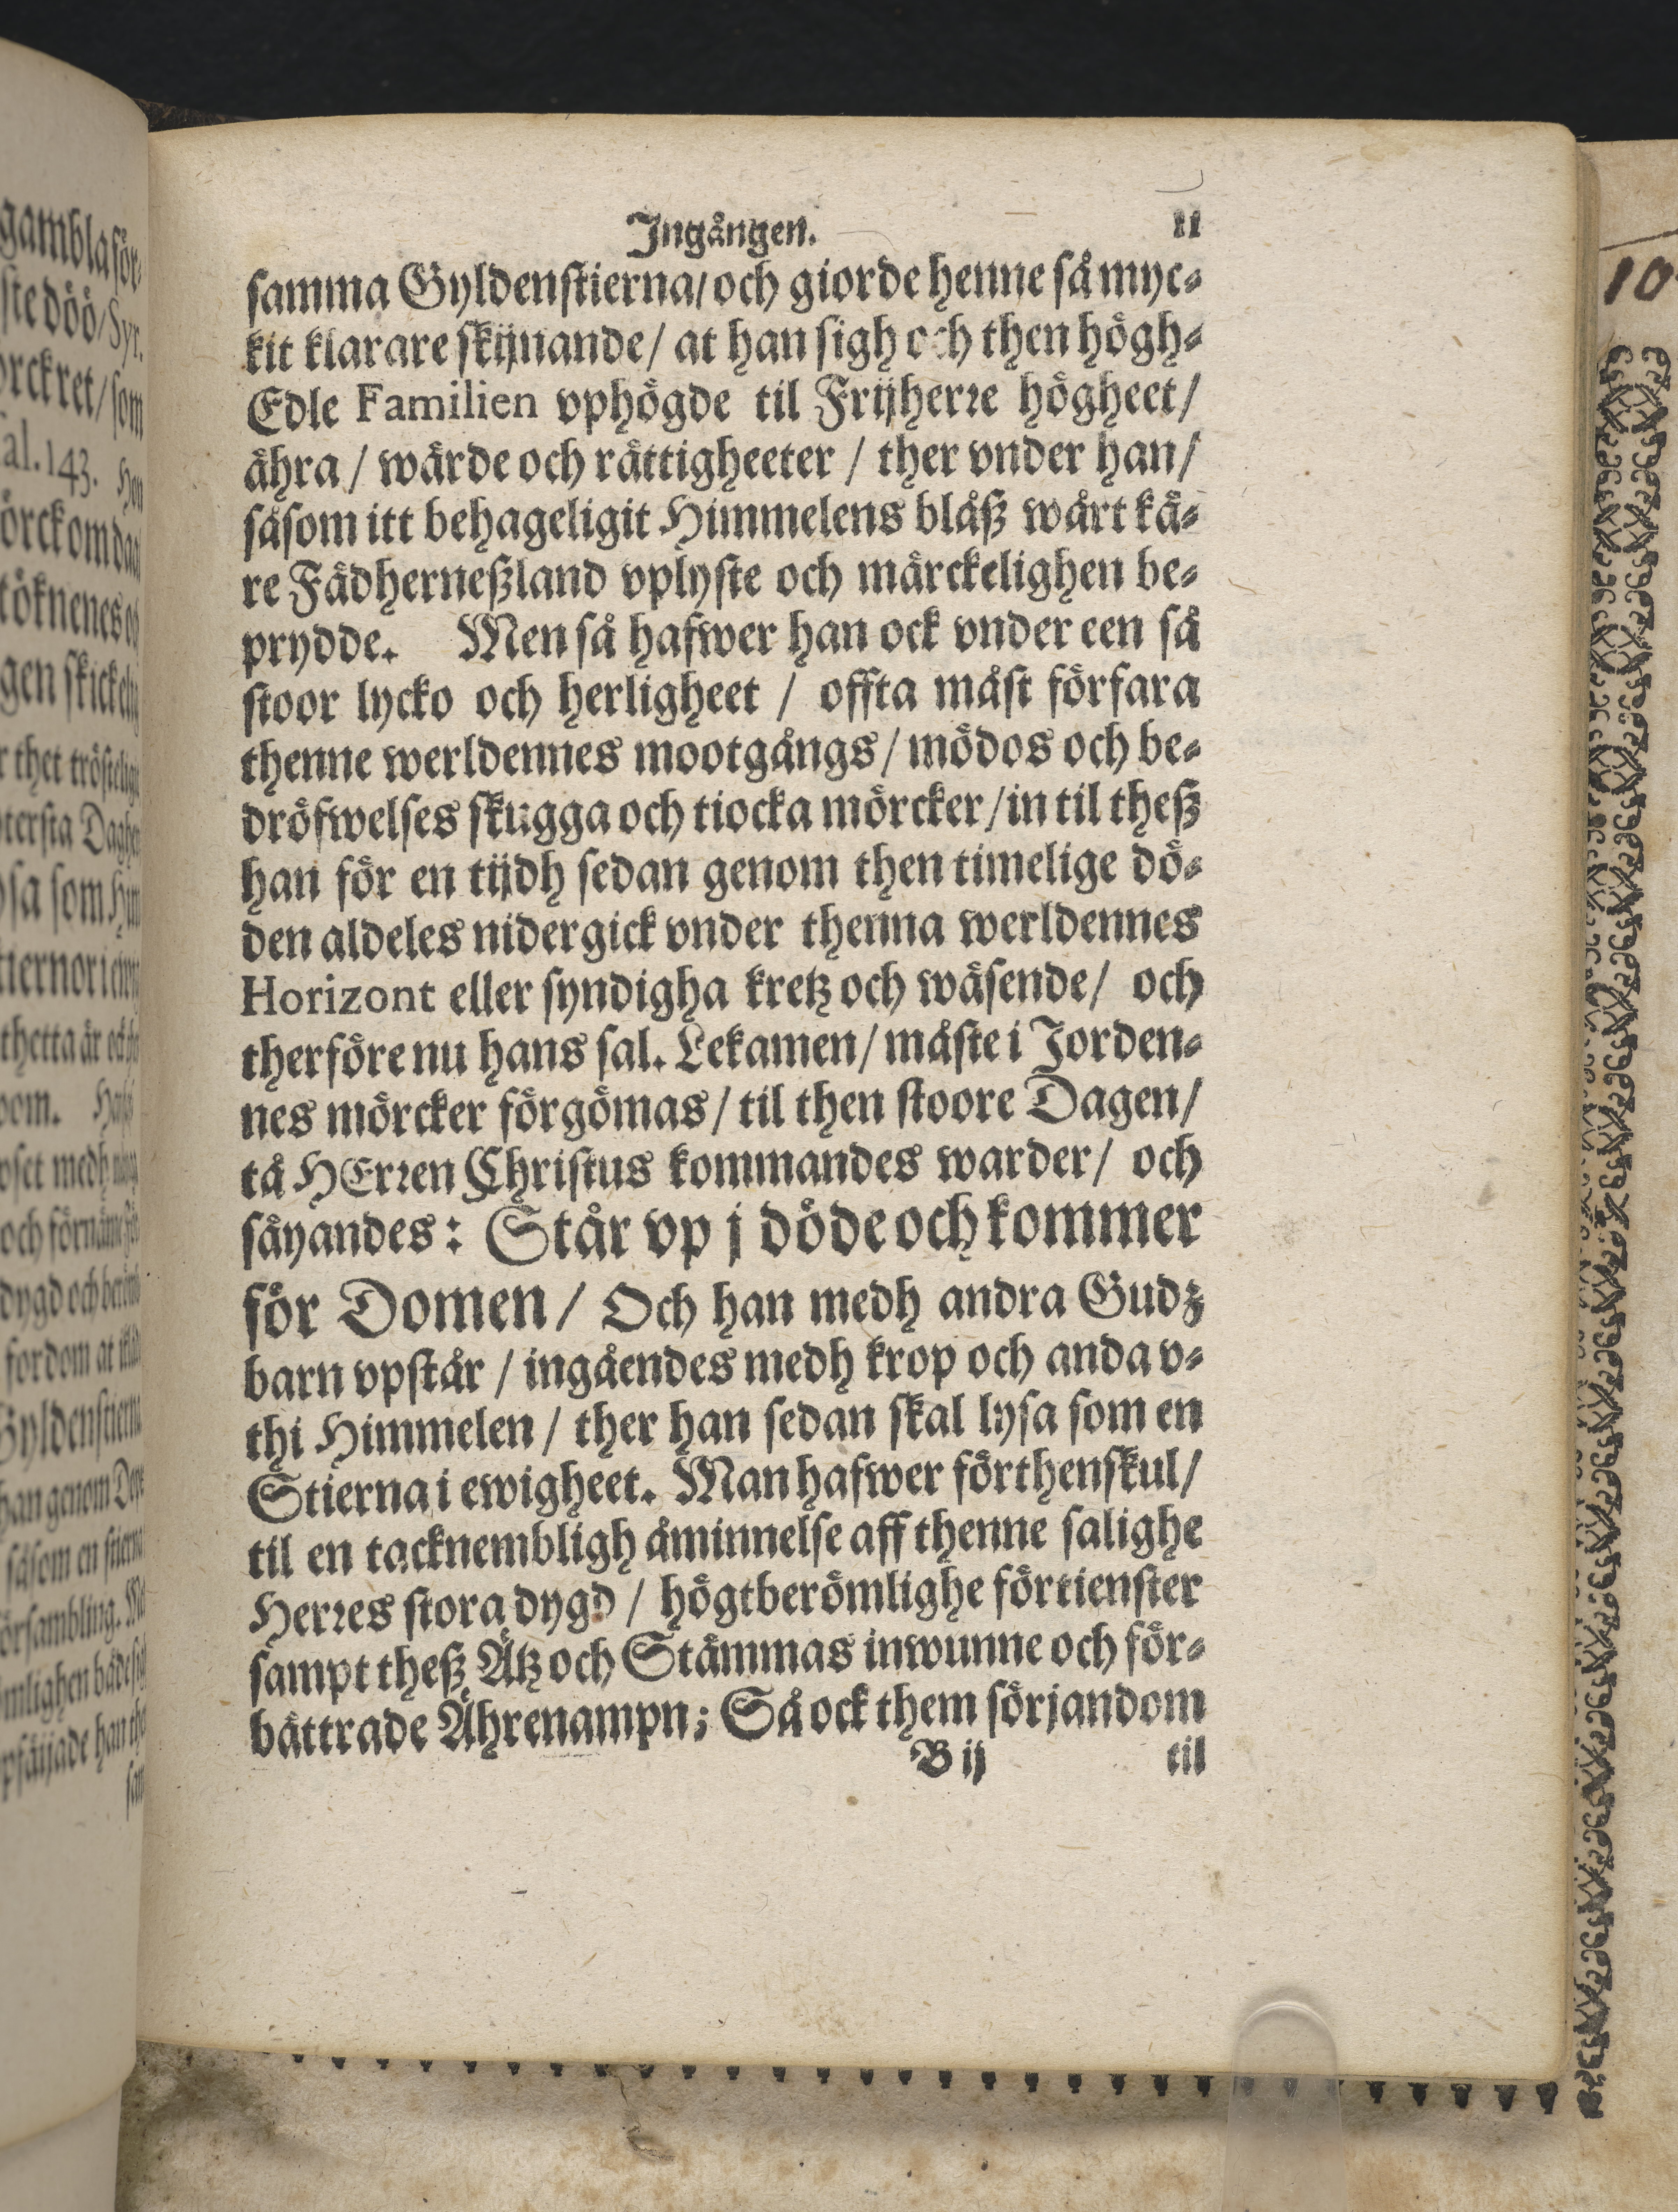 Ingången. 11
samma Gyldenstierna/ och giorde henne så myc⸗
kit klarare skijnande/ at han sigh och then högh⸗
Edle Familien vphögde til Frijherre högheet/
ähra / wärde och rättigheeter / ther vnder han/
såsom itt behageligit Himmelens blåß wårt kä⸗
re Fädherneßland vplyste och märckelighen be⸗
prydde. Men så hafwer han ock vnder een så
stoor lycko och herligheet / offta måst förfara
thenne werldennes mootgångs/ mödos och be⸗
dröfwelses skugga och tiocka mörcker/ in til theß
han för en tijdh sedan genom then timelige dö⸗
den aldeles nidergick vnder thenna werldennes
Horizont eller syndigha kretz och wäsende/ och
therföre nu hans sal. Lekamen/ måste i Jorden⸗
nes mörcker förgömas/ til then stoore Dagen/
tå HErren Christus kommandes warder/ och
säyandes: Står vp j döde och kommer
för Domen/ Och han medh andra Gudz
barn vpstår / ingåendes medh krop och anda v⸗
thi Himmelen / ther han sedan skal lysa som en
Stierna i ewigheet. Man hafwer förthenskul/
til en tacknembligh åminnelse aff thenne salighe
Herres stora dygd / högtberömlighe förtienster
sampt theß Ätz och Stämmas inwunne och för⸗
bättrade Ährenampn; Så ock them sörjandom
B ij til
10